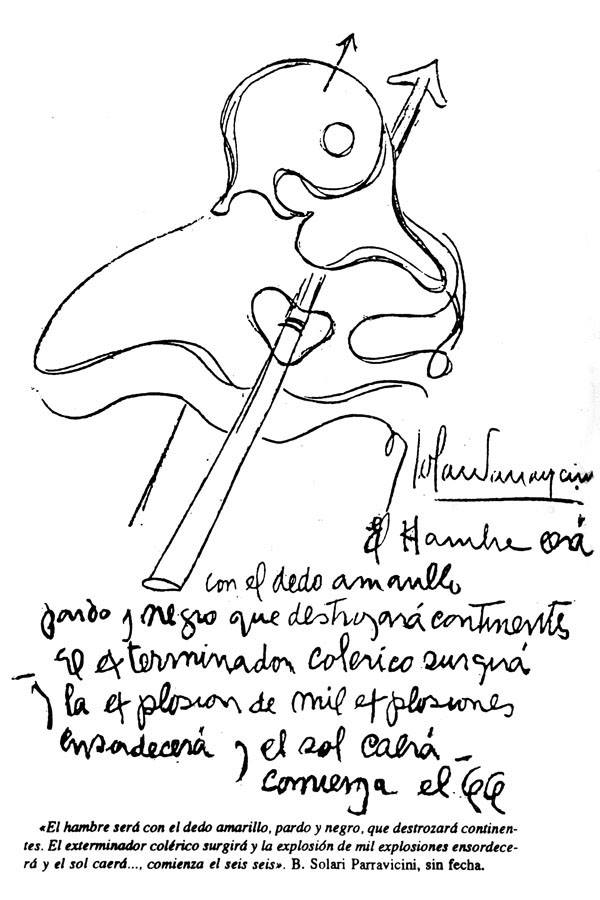 Solari Parravicini
El Hambre será
con el dedo amarillo
pardo y negro que destrozará continentes
El exterminador colerico surgirá
y la explosion de mil explosiones
ensordecerá y el sol caerá _
comienza el 66
«El hambre será con el dedo amarillo, pardo y negro, que destrozará continen-
tes. El exterminador colérico surgirá y la explosión de mil explosiones ensordece-
rá y el sol caerá..., comienza el seis seis». B. Solari Parravicini, sin fecha.